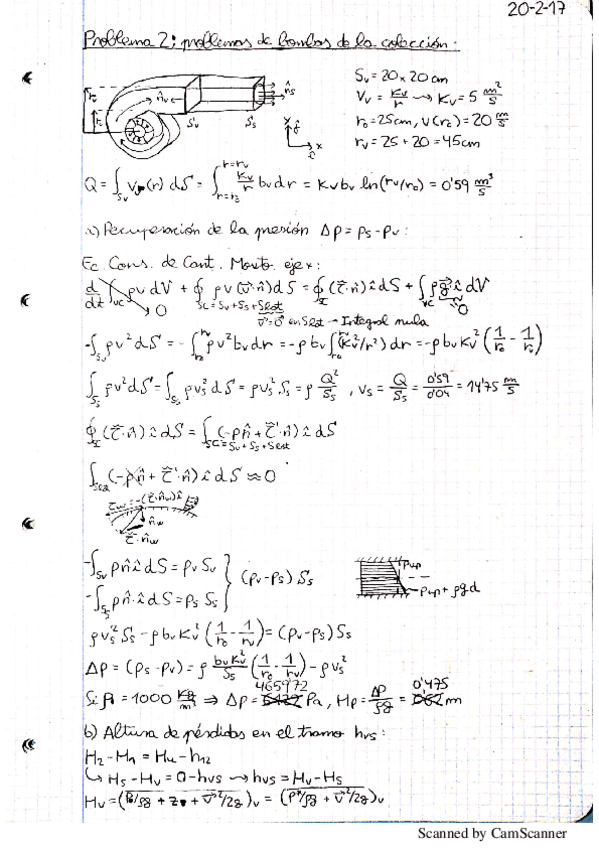 20-2-17
Problema 2: problemas de bombas de la colección:
r_v n̂_v n̂_s
r_o S_v S_s
y ĵ x î
S_v = 20 x 20 cm
V_v = K_v/r → K_v = 5 m²/s
r_o = 25cm, v(r_2) = 20 m/s
r_v = 25 + 20 = 45cm
Q = ∫_{S_v} v_v(r) dS = ∫_{r=r_2}^{r=r_v} K_v/r b_v dr = K_v b_v ln(r_v/r_o) = 0'59 m³/s
a) Recuperación de la presión Δp = p_s - p_v:
Ec. Cons. de Cant. Movto. eje x:
d/dt ∫_{VC} ρv dV + ∮_{SC=S_v+S_s+Slat} ρv (v̄·n̄) dS = ∮_Σ (τ̄·n̄) î dS + ∫_{VC} ρḡ·î dV
0 v̄=0̄ en Slat → Integral nula 0
-∫_{S_v} ρv² dS = -∫_{r_o}^{r_v} ρv² b_v dr = -ρ b_v ∫_{r_o}^{r_v} (K_v²/r²) dr = -ρ b_v K_v² (1/r_o - 1/r_v)
∫_{S_s} ρv² dS = ∫_{S_s} ρv_s² dS = ρv_s² S_s = ρ Q²/S_s , v_s = Q/S_s = 0'59/0'04 = 14'75 m/s
∮_Σ (τ̄·n̄) î dS = ∫_{SC=S_v+S_s+Slat} (-pn̂ + τ̄'·n̂) î dS
∫ (-pn̂ + τ̄'·n̂) î dS ≈ 0
τ_w = -(τ̄·n̂_w) î
n̂_w
τ̄·n̂_w
-∫_{S_v} p n̂·î dS = p_v S_v
-∫_{S_s} p n̂·î dS = p_s S_s } (p_v - p_s) S_s
p_up
p_up + ρg d
ρv_s² S_s - ρ b_v K_v² (1/r_o - 1/r_v) = (p_v - p_s) S_s
Δp = (p_s - p_v) = ρ b_v K_v²/S_s (1/r_o - 1/r_v) - ρv_s²
Si ρ = 1000 kg/m³ ⇒ Δp = 4659'72 Pa, H_p = Δp/ρg = 0'475 m
b) Altura de pérdidas en el tramo h_vs:
H_2 - H_1 = H_u - h_12
↳ H_s - H_v = 0 - h_vs → h_vs = H_v - H_s
H_v = (p/ρg + z + v̄²/2g)_v = (p*/ρg + v̄²/2g)_v
Scanned by CamScanner